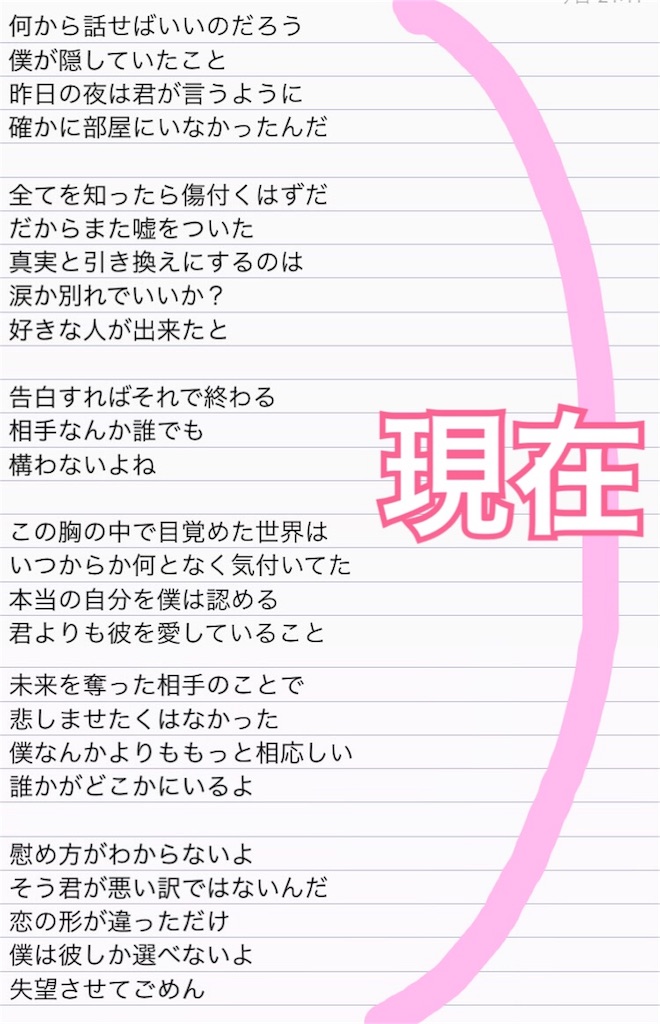 何から話せばいいのだろう
僕が隠していたこと
昨日の夜は君が言うように
確かに部屋にいなかったんだ
全てを知ったら傷付くはずだ
だからまた嘘をついた
真実と引き換えにするのは
涙か別れでいいか？
好きな人が出来たと
告白すればそれで終わる
相手なんか誰でも
構わないよね
現在
この胸の中で目覚めた世界は
いつからか何となく気付いてた
本当の自分を僕は認める
君よりも彼を愛していること
未来を奪った相手のことで
悲しませたくはなかった
僕なんかよりももっと相応しい
誰かがどこかにいるよ
慰め方がわからないよ
そう君が悪い訳ではないんだ
恋の形が違っただけ
僕は彼しか選べないよ
失望させてごめん